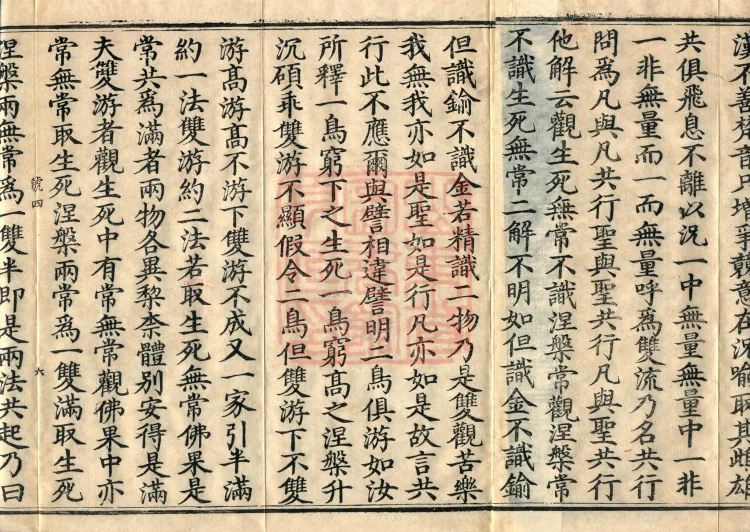 漢不善梵音只增爭競意在況喻取其雌雄
共俱飛息不離以況一中無量無量中一非
一非無量而一而無量呼爲雙流乃名共行
問爲凡與凡共行聖與聖共行凡與聖共行
他解云觀生死無常不識涅槃常觀涅槃常
不識生死無常二解不明如但識金不識鍮
但識鍮不識金若精識二物乃是雙觀苦樂
我無我亦如是聖如是行凡亦如是故言共
行此不應爾與譬相違譬明二鳥俱游如汝
所釋一鳥窮下之生死一鳥窮髙之涅槃升
沉碩乖雙游不顯假令二鳥但雙游下不雙
游髙游髙不游下雙游不成又一家引半滿
約一法雙游約二法若取生死無常佛果是
常共爲滿者兩物各異㮈柰體別安得是滿
號四
六
夫雙游者觀生死中有常無常觀佛果中亦
常無常取生死涅槃兩常爲一雙滿取生死
涅槃兩無常爲一雙半即是兩法共起乃曰